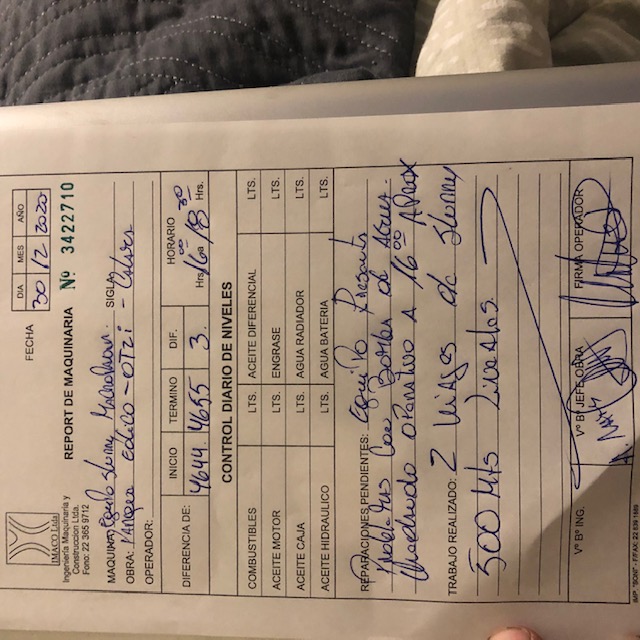 FECHA
DIA MES AÑO
30 12 2020
IMACO Ltda
Ingeniería Maquinaria y
Construccion Ltda.
Fono: 22 365 9712
REPORT DE MAQUINARIA Nº 3422710
MAQUINA: Equipo Slurry SIGLA:
OBRA: EOLICO - OTZI -
OPERADOR:
INICIO TERMINO DIF. HORARIO
DIFERENCIA DE: 4644. 4655 3. Hrs. 16 00 a /18 30 Hrs.
CONTROL DIARIO DE NIVELES
COMBUSTIBLES LTS. ACEITE DIFERENCIAL LTS.
ACEITE MOTOR LTS. ENGRASE LTS.
ACEITE CAJA LTS. AGUA RADIADOR LTS.
ACEITE HIDRAULICO LTS. AGUA BATERIA LTS.
REPARACIONES PENDIENTES: Equipo Presenta
Problemas Con Bomba de Agua.
Quedando operativo A 16 00 Aprox
TRABAJO REALIZADO: 2 Viages de Slurry
500 Mts Lineales.
Vº Bº ING. Vº Bº JEFE OBRA FIRMA OPERADOR
IMP. "BONI" - F/FAX: 22 839 1689